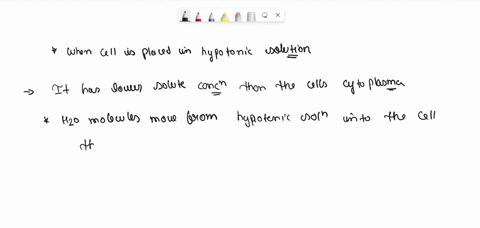 * When cell is placed in hypotonic solution
→ It has lower solute concⁿ than the cells cytoplasma
* H2O molecules move from hypotonic solⁿ into the cell
th